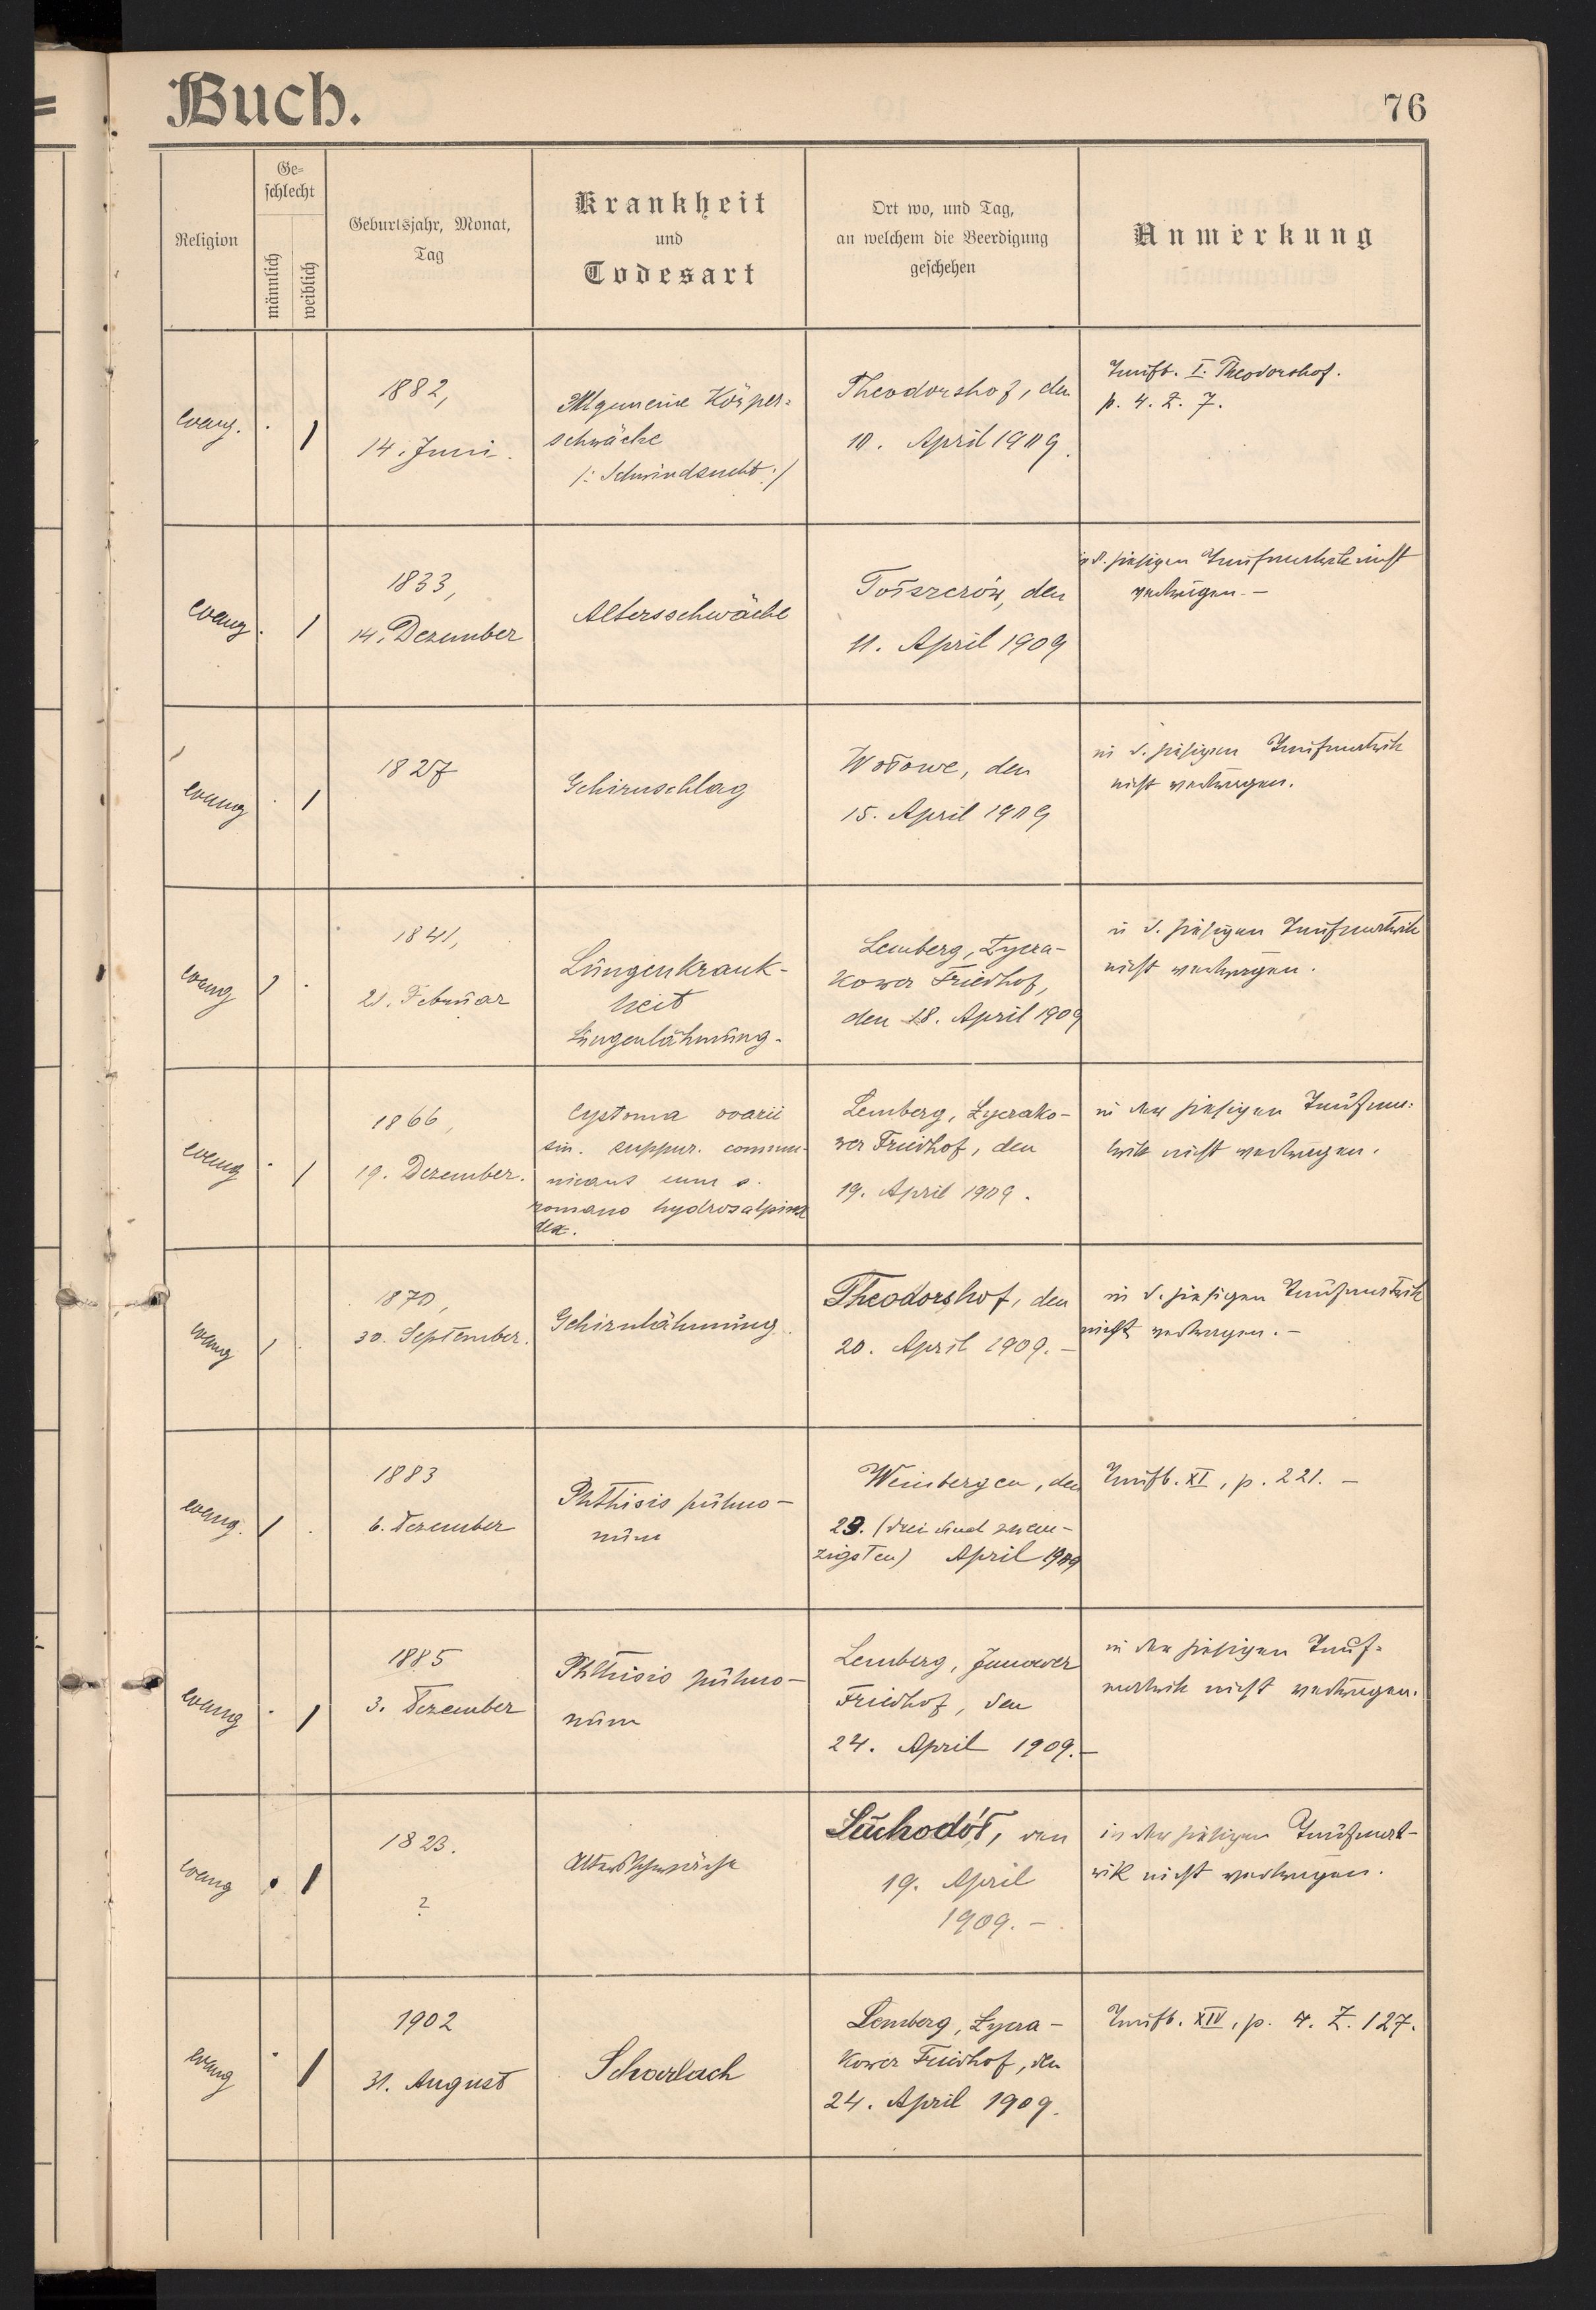 Buch.
76
Religion
Ge-
schlecht
männlich
weiblich
Geburtsjahr, Monat,
Tag
Krankheit
und
Todesart
Ort wo, und Tag,
an welchem die Beerdigung
geschehen
Anmerkung
evang.
1
1882,
14. Juni.
Allgemeine Körper-
schwäche
/: Schwindsucht :/
Theodorshof, den
10. April 1909.
Taufb. I. Theodorshof.
p. 4. Z. 7.
evang.
1
1833,
14. Dezember
Altersschwäche
den
11. April 1909
i. d. hiesigen Taufmatrik nicht
vertragen. –
evang
1
1827
Gehirnschlag
den
15. April 1909
in d. hiesigen Taufmatrik
nicht vertragen.
evang
1
1841,
21. Februar
Lungenkrank-
heit
Lungenlähmung.
Lemberg, Łycza-
kower Friedhof,
den 18. April 1909
in d. hiesigen Taufmatrik
nicht vertragen.
evang
1
1866,
19. Dezember.
Cystoma ovarii
sin. suppur. commu-
nicans cum s.
romano hydrosalpinx
dex.
Lemberg, Łyczako-
wer Friedhof, den
19. April 1909.
in der hiesigen Taufma-
trik nicht vertragen.
evang
1
1870,
30. September.
Gehirnlähmung.
Theodorshof, den
20. April 1909. –
in d. hiesigen Taufmatrik
nicht vertragen. –
evang.
1
1883
6. Dezember
Phthisis pulmo-
num
Weinbergen, den
23. (drei und zwan-
zigsten) April 1909
Taufb. XI, p. 221. –
evang
1
1885
3. Dezember
Phthisis pulmo-
num
Lemberg, Janower
Friedhof, den
24. April 1909. –
in der hiesigen Tauf-
matrik nicht vertragen.
evang
1
1823.
?
Altersschwäche
Suchodół, den
19. April
1909. –
in der hiesigen Taufmat-
rik nicht vertragen.
evang
1
1902
31. August
Scharlach
Lemberg, Łycza-
kower Friedhof, den
24. April 1909.
Taufb. XIV, p. 4. Z. 127.